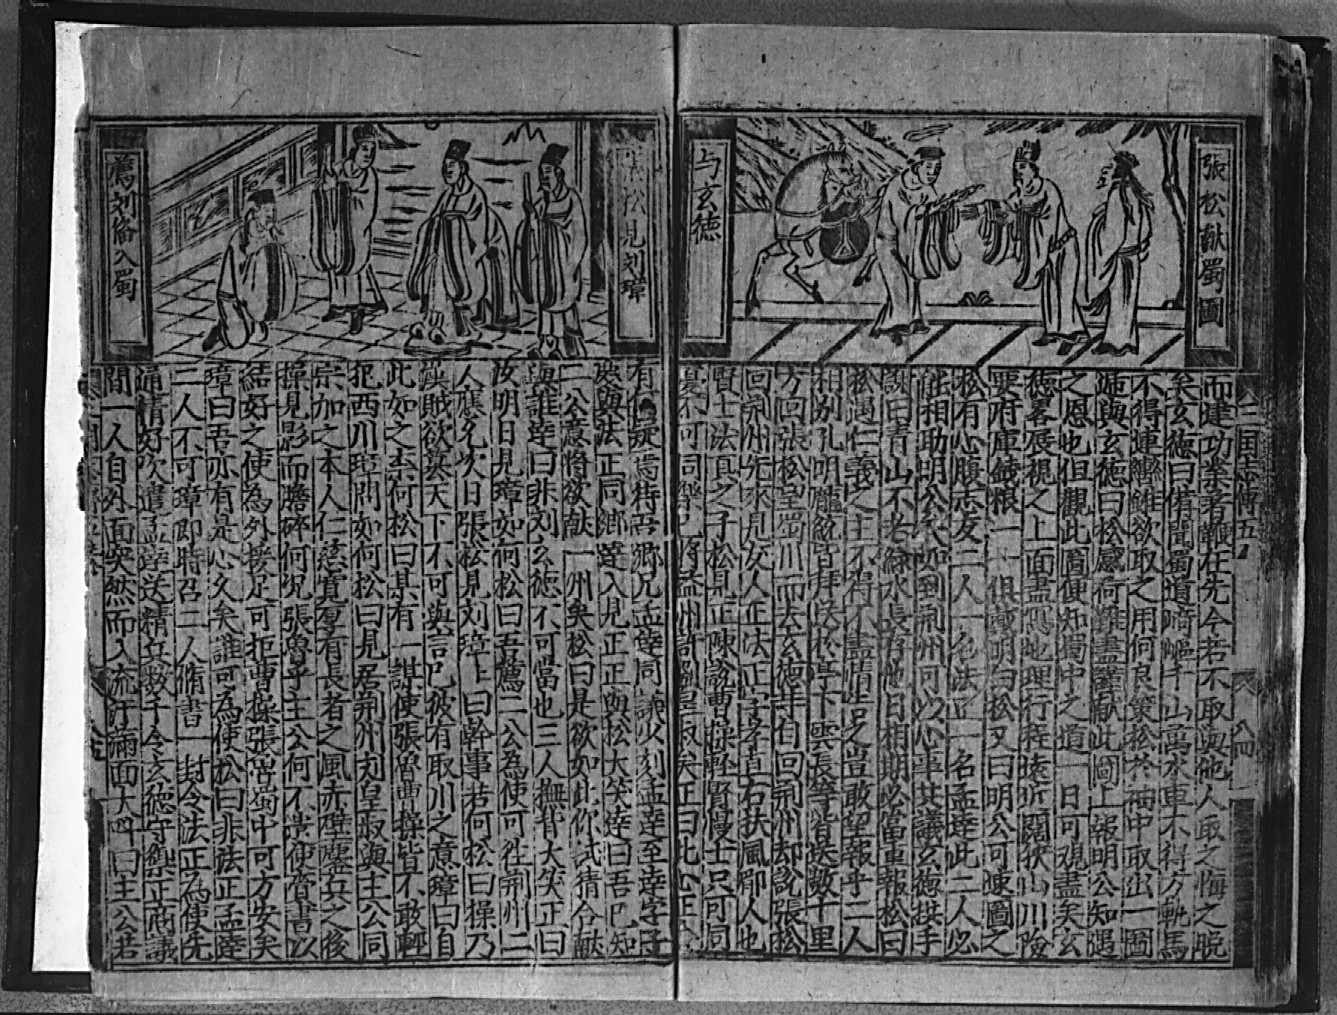 張松獻蜀圖
与玄德
而建功業著鞭在先今若不取為他人取之悔之晚
矣玄德曰備聞蜀道崎嶇千山萬水車不得方軌馬
不得連轡雖欲取之用何良策松於袖中取出一圖
遞與玄德曰松感荷難盡獻此圖上報明公知遇
之恩也但觀此圖便知蜀中之道一日可觀盡矣玄
德畧展視之上面盡寫地理行程遠近闊狹山川險
要府庫錢粮一一俱載明白松又曰明公可速圖之
松有心腹志友二人一名法正一名孟達此二人必
能相助明公矣如到荊州可以心事共議玄德拱手
謝曰青山不老綠水長存他日相期必當重報松曰
松遇仁義之主不得不盡情告兄豈敢望報乎二人
相別孔明雲長等皆送數十里
方回張松望蜀川而去玄德等自回荊州却說張松
回州先來見友人正法正字孝直右扶風郿人也
賢士法真之子松見正陳說曹操輕賢慢士只可同
憂不可同樂已將益州許劉皇叔矣正曰此心正合
三國志傳五
張松見刘璋
薦刘俻入蜀
有何疑焉待吾鄉兄孟達同議少刻孟達至達字子
慶與法正同鄉達入見正正與松大笑達曰吾已知
二公意將欲献一州矣松曰是欲如此你試猜合献
與誰達曰非刘玄德不可當也三人撫背大笑正曰
汝明日見璋如何松曰吾薦二公為使可徃荊州二
人應允次日張松見刘璋上曰幹事若何松曰操乃
漢賊欲篡天下不可與言已彼有取川之意璋曰自
此如之奈何松曰某有一謀使張魯曹操皆不敢輕
犯西川璋問如何松曰見居荊州刘皇叔與主公同
宗加之本人仁慈寬厚有長者之風赤壁鏖兵之後
操見影而膽碎何况張魯乎主公何不遣使賫書以
結好之使為外援足可拒曹操張魯蜀中可方安矣
璋曰吾亦有是心久矣誰可為使松曰非法正孟達
二人不可璋即時召二人脩書一封令法正為使先
通情好次遣孟達送精兵数千令玄德守禦正商議
間一人自外面突然而入流汗滿面大叫曰主公若